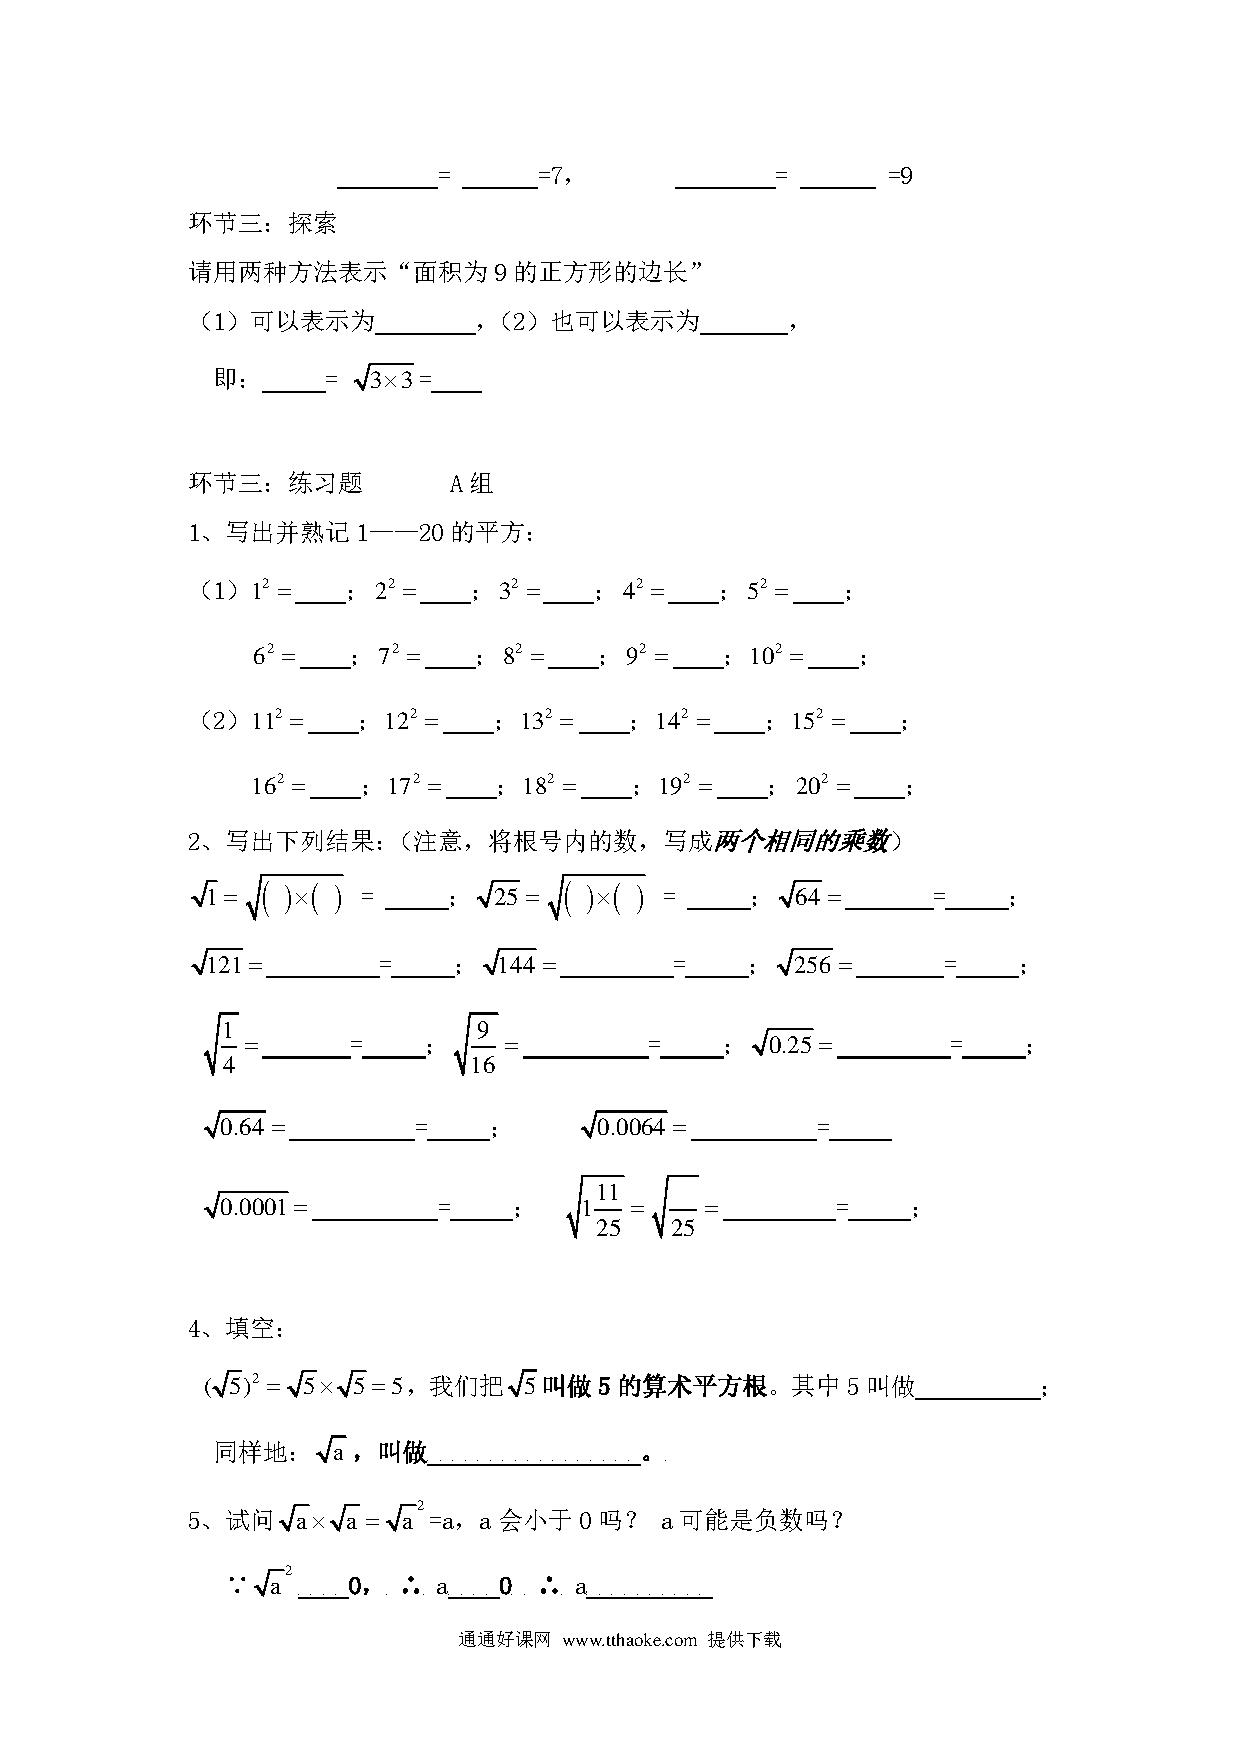 ________= ______=7，　　　________= ______ =9
环节三：探索
请用两种方法表示“面积为9的正方形的边长”
（1）可以表示为________，（2）也可以表示为_______，
即：_____= √(3×3) =____
环节三：练习题　　　A组
1、写出并熟记1——20的平方：
（1）1² =____；2² =____；3² =____；4² =____；5² =____；
6² =____；7² =____；8² =____；9² =____；10² =____；
（2）11² =____；12² =____；13² =____；14² =____；15² =____；
16² =____；17² =____；18² =____；19² =____；20² =____；
2、写出下列结果：（注意，将根号内的数，写成两个相同的乘数）
√1 = √(( )×( )) = _____；√25 = √(( )×( )) = _____；√64 =_______=_____；
√121 =_________=_____；√144 =_________=_____；√256 =_______=_____；
√(1/4) =_______=_____；√(9/16) = __________=_____；√0.25 =_________=_____；
√0.64 =__________=_____；　　√0.0064 =__________=_____
√0.0001 =__________=_____；　√(1 11/25) = √( /25) =_________=_____；
4、填空：
(√5)² = √5×√5 = 5，我们把√5叫做5的算术平方根。其中5叫做__________；
同样地：√a，叫做_________________。
5、试问√a×√a = √a² =a，a会小于0吗？ a可能是负数吗？
∵√a² ____0，∴ a____0 ∴ a__________
通通好课网 www.tthaoke.com 提供下载